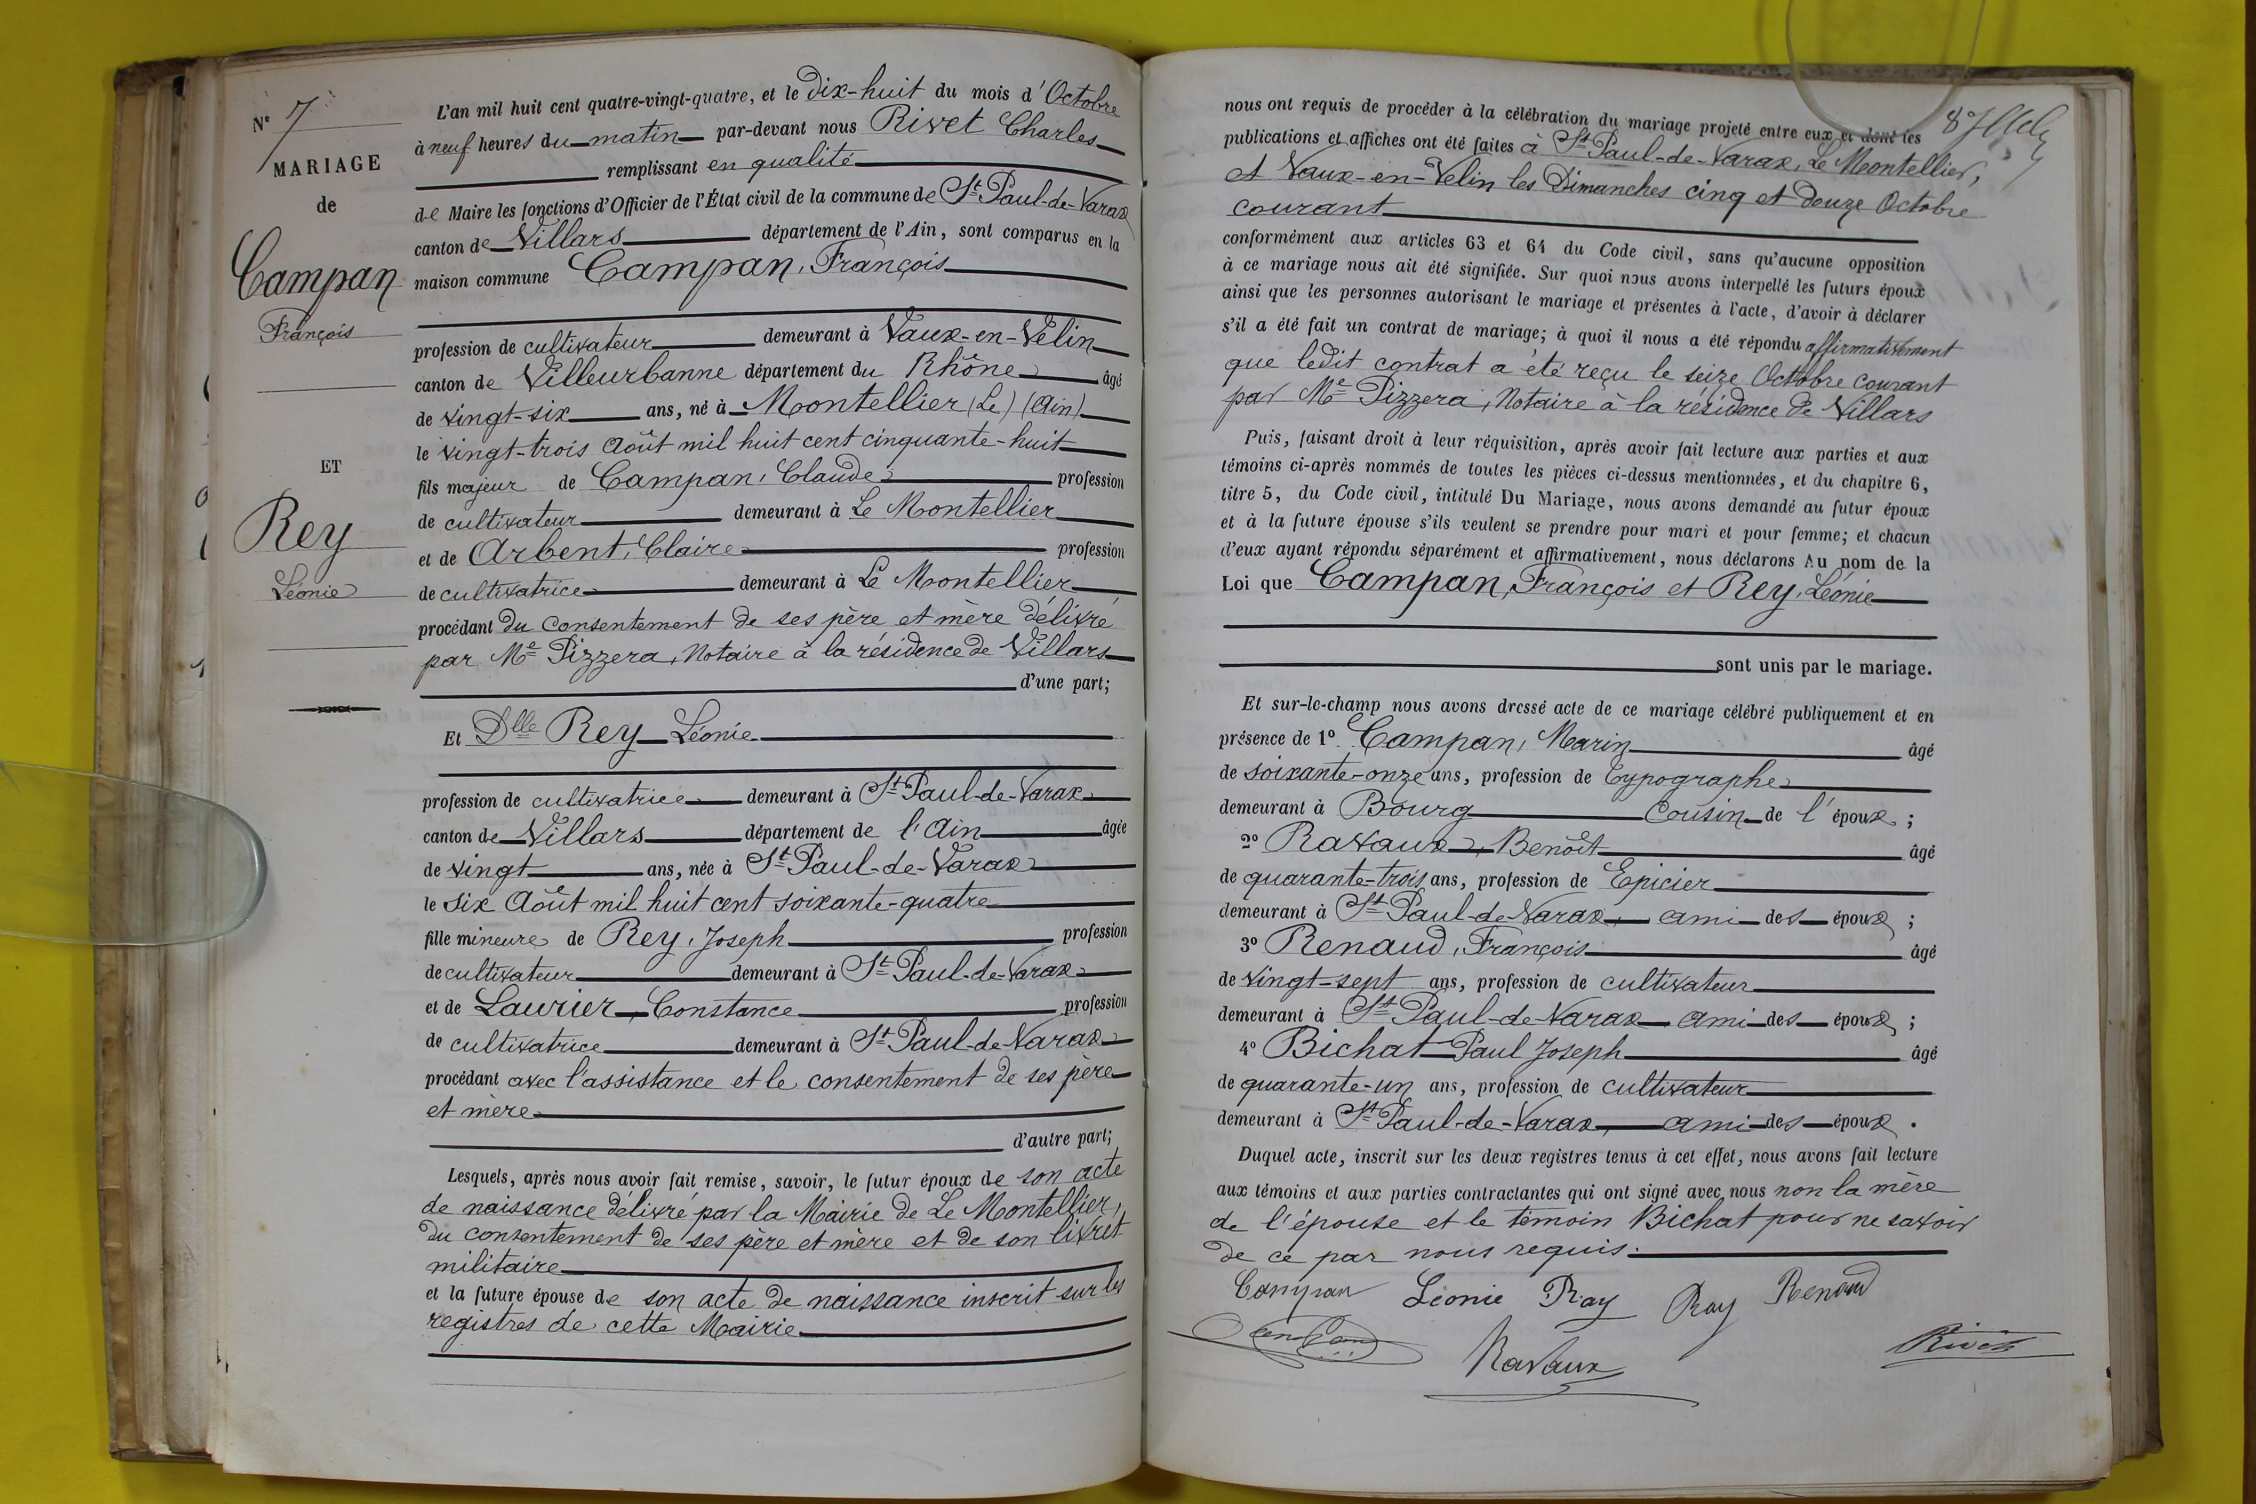 Nº 7
MARIAGE
de
Campan
François
ET
Rey
Léonie
L'an mil huit cent quatre-vingt-quatre, et le dix-huit du mois d'Octobre
à neuf heures du matin par-devant nous Rivet Charles
remplissant en qualité
de Maire les fonctions d'Officier de l'État civil de la commune de St Paul-de-Varax
canton de Villars département de l'Ain, sont comparus en la
maison commune Campan, François
profession de cultivateur demeurant à Vaux-en-Velin
canton de Villeurbanne département du Rhône âgé
de vingt-six ans, né à Montellier (Le) (Ain)
le vingt-trois Août mil huit cent cinquante-huit
fils majeur de Campan, Claude profession
de cultivateur demeurant à Le Montellier
et de Arbent, Claire profession
de cultivatrice demeurant à Le Montellier
procédant du consentement de ses père et mère délivré
par Me Pizzera, Notaire à la résidence de Villars
d'une part;
Et Dlle Rey Léonie
profession de cultivatrice demeurant à St Paul-de-Varax
canton de Villars département de l'Ain âgée
de vingt ans, née à St Paul-de-Varax
le six Août mil huit cent soixante-quatre
fille mineure de Rey, Joseph profession
de cultivateur demeurant à St Paul-de-Varax
et de Laurier, Constance profession
de cultivatrice demeurant à St Paul-de-Varax
procédant avec l'assistance et le consentement de ses père
et mère
d'autre part;
Lesquels, après nous avoir fait remise, savoir, le futur époux de son acte
de naissance délivré par la Mairie de Le Montellier,
du consentement de ses père et mère et de son livret
militaire
et la future épouse de son acte de naissance inscrit sur les
registres de cette Mairie
nous ont requis de procéder à la célébration du mariage projeté entre eux et dont les
publications et affiches ont été faites à St Paul-de-Varax, Le Montellier,
et Vaux-en-Velin les Dimanches cinq et douze Octobre
courant
conformément aux articles 63 et 64 du Code civil, sans qu'aucune opposition
à ce mariage nous ait été signifiée. Sur quoi nous avons interpellé les futurs époux
ainsi que les personnes autorisant le mariage et présentes à l'acte, d'avoir à déclarer
s'il a été fait un contrat de mariage; à quoi il nous a été répondu affirmativement
que ledit contrat a été reçu le seize Octobre courant
par Me Pizzera, Notaire à la résidence de Villars
Puis, faisant droit à leur réquisition, après avoir fait lecture aux parties et aux
témoins ci-après nommés de toutes les pièces ci-dessus mentionnées, et du chapitre 6,
titre 5, du Code civil, intitulé Du Mariage, nous avons demandé au futur époux
et à la future épouse s'ils veulent se prendre pour mari et pour femme; et chacun
d'eux ayant répondu séparément et affirmativement, nous déclarons Au nom de la
Loi que Campan, François et Rey, Léonie
sont unis par le mariage.
Et sur-le-champ nous avons dressé acte de ce mariage célébré publiquement et en
présence de 1º Campan, Marin âgé
de soixante-onze ans, profession de Typographe
demeurant à Bourg Cousin de l'époux;
2º Ravaux, Benoît âgé
de quarante-trois ans, profession de Epicier
demeurant à St Paul-de-Varax, ami des époux;
3º Renaud, François âgé
de vingt-sept ans, profession de cultivateur
demeurant à St Paul-de-Varax ami des époux;
4º Bichat Paul Joseph âgé
de quarante-un ans, profession de cultivateur
demeurant à St Paul-de-Varax, ami des époux.
Duquel acte, inscrit sur les deux registres tenus à cet effet, nous avons fait lecture
aux témoins et aux parties contractantes qui ont signé avec nous non la mère
de l'épouse et le témoin Bichat pour ne savoir
de ce par nous requis.
Campan Léonie Ray Ray Renaud
Ravaux Rivet